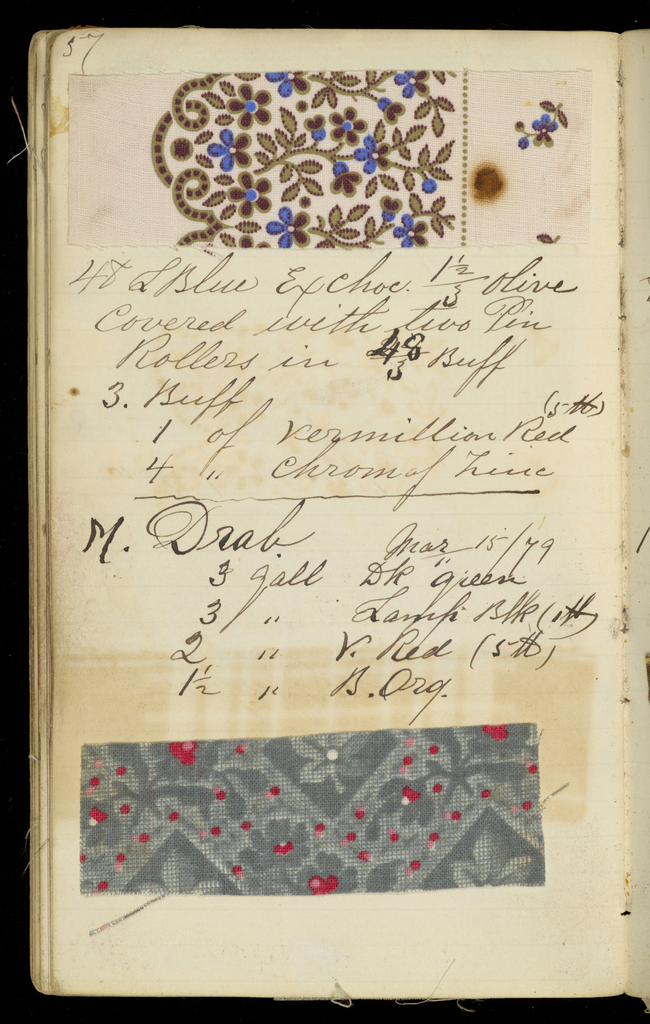 57
4# L Blue Ex choc. 1½/3 olive
Covered with two Pin
Rollers in 48/3 Buff
3. Buff
(5 #)
1 of Vermillion Red
4 " Chrom of Zinc
M. Drab. Mar 15/79
3 gall Dk green
3 " Lamp Blk (1#)
2 " V. Red (5#)
1½ " B. Org.